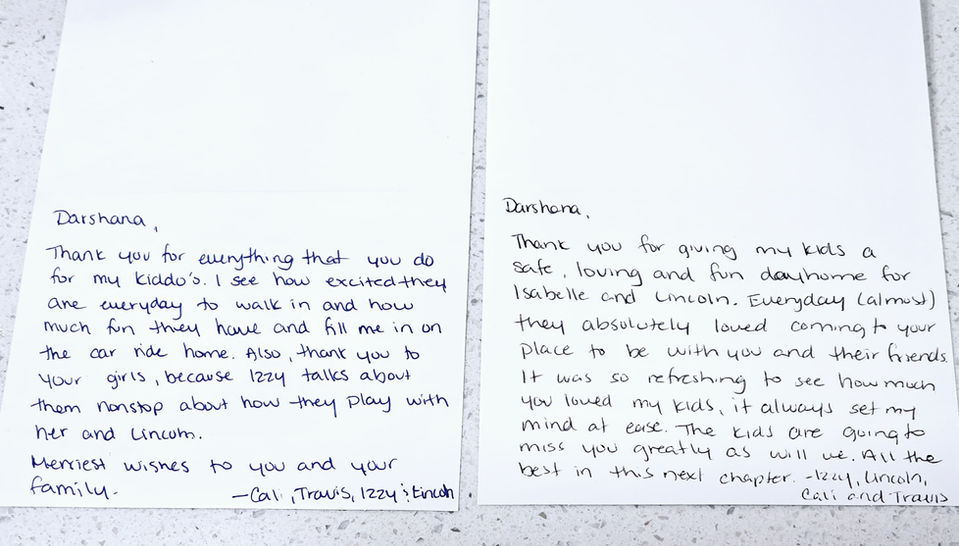 Darshana,
Thank you for everything that you do
for my kiddo's. I see how excited they
are everyday to walk in and how
much fun they have and fill me in on
the car ride home. Also, thank you to
your girls, because Izzy talks about
them nonstop about how they play with
her and Lincoln.
Merriest wishes to you and your
family.
-Cali, Travis, Izzy & Lincoln
Darshana,
Thank you for giving my kids a
safe, loving and fun dayhome for
Isabelle and Lincoln. Everyday (almost)
they absolutely loved coming to your
place to be with you and their friends.
It was so refreshing to see how much
you loved my kids, it always set my
mind at ease. The kids are going to
miss you greatly as will we. All the
best in this next chapter. -Izzy, Lincoln,
Cali and Travis